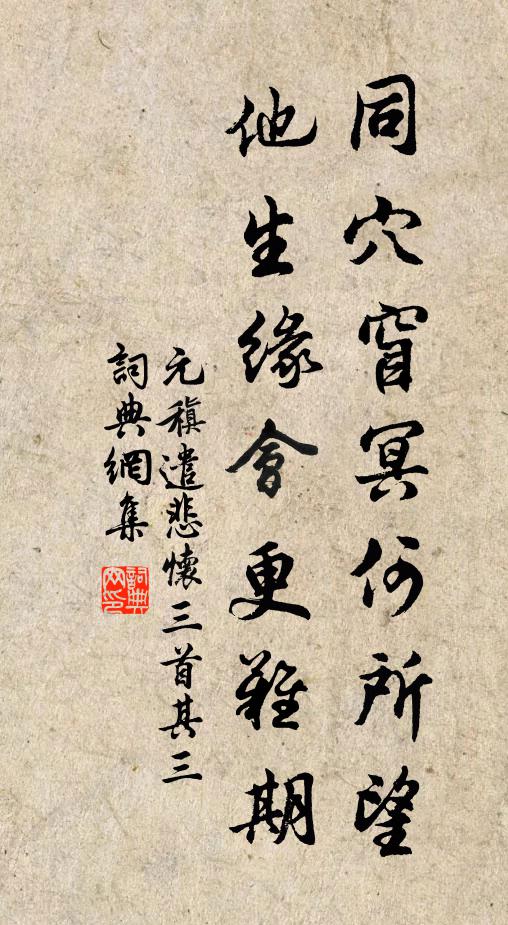 同穴窅冥何所望
他生緣會更難期
元稹遣悲懷三首其三
詞典網集
詞典
网印